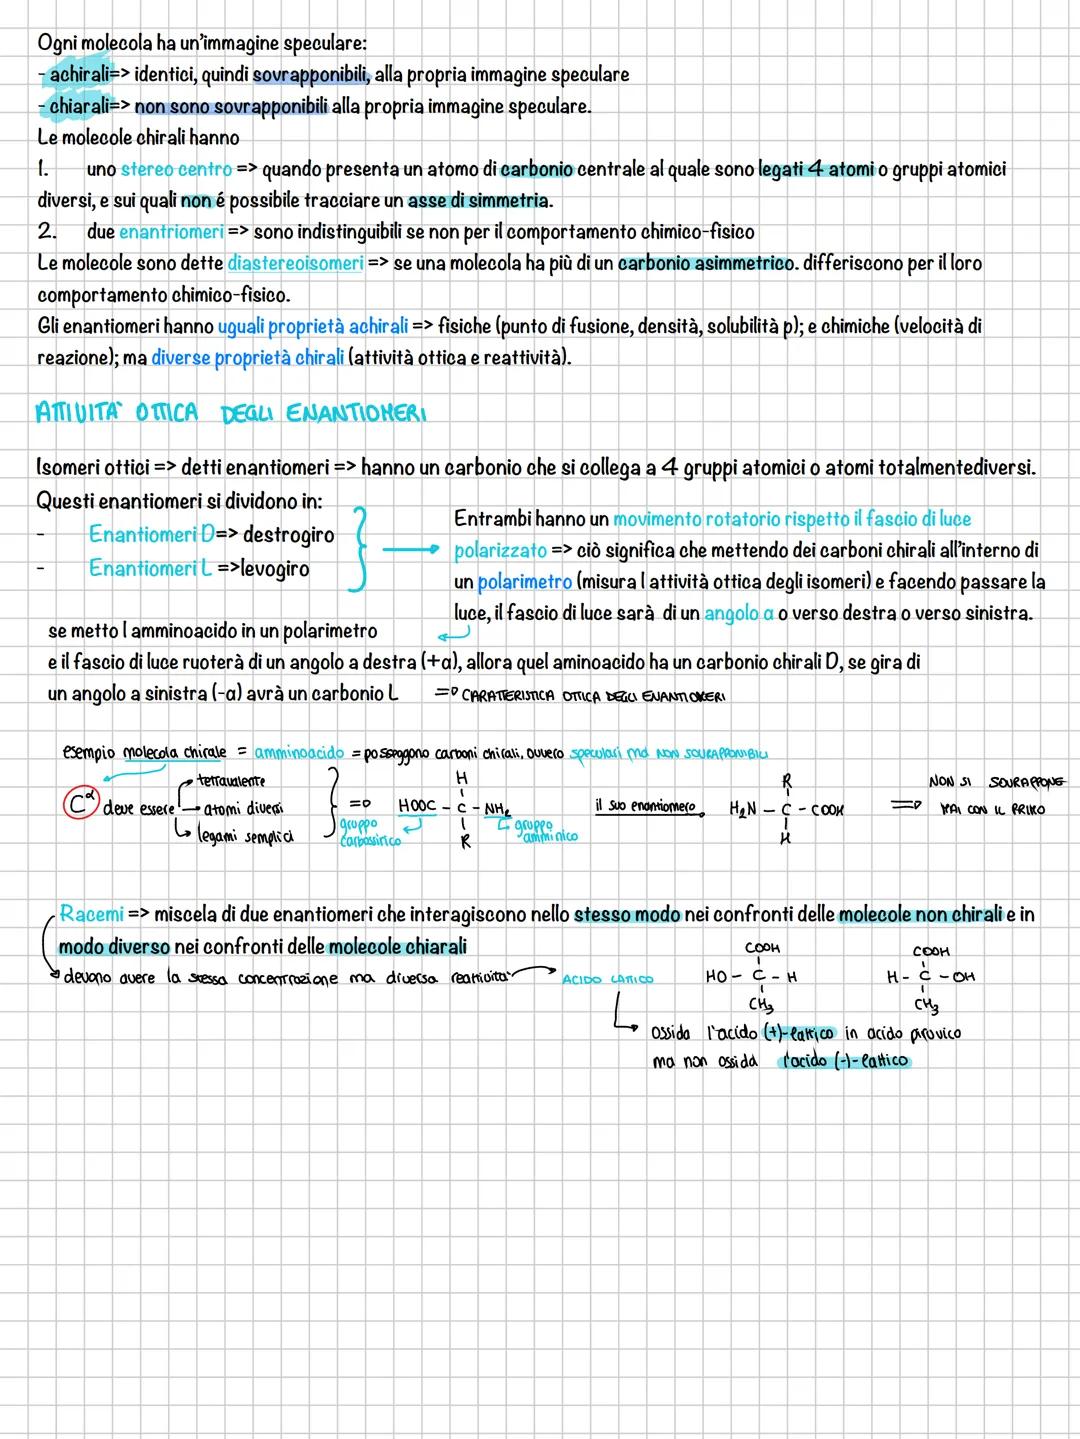 Ogni molecola ha un'immagine speculare:
- achirali=> identici, quindi sovrapponibili, alla propria immagine speculare
- chiarali=> non sono sovrapponibili alla propria immagine speculare.
Le molecole chirali hanno
1. uno stereo centro => quando presenta un atomo di carbonio centrale al quale sono legati 4 atomi o gruppi atomici
diversi, e sui quali non é possibile tracciare un asse di simmetria.
2. due enantriomeri => sono indistinguibili se non per il comportamento chimico-fisico
Le molecole sono dette diastereoisomeri => se una molecola ha più di un carbonio asimmetrico. differiscono per il loro
comportamento chimico-fisico.
Gli enantiomeri hanno uguali proprietà achirali => fisiche (punto di fusione, densità, solubilità p); e chimiche (velocità di
reazione); ma diverse proprietà chirali (attività ottica e reattività).
ATTIVITA' OTTICA DEGLI ENANTIOMERI
Isomeri ottici => detti enantiomeri => hanno un carbonio che si collega a 4 gruppi atomici o atomi totalmentediversi.
Questi enantiomeri si dividono in:
- Enantiomeri D=> destrogiro
- Enantiomeri L =>levogiro
Entrambi hanno un movimento rotatorio rispetto il fascio di luce
polarizzato => ciò significa che mettendo dei carboni chirali all'interno di
un polarimetro (misura l attività ottica degli isomeri) e facendo passare la
luce, il fascio di luce sarà di un angolo α o verso destra o verso sinistra.
se metto l amminoacido in un polarimetro
e il fascio di luce ruoterà di un angolo a destra (+α), allora quel aminoacido ha un carbonio chirali D, se gira di
un angolo a sinistra (-α) avrà un carbonio L => CARATTERISTICA OTTICA DEGLI ENANTIOMERI
esempio molecola chirale = amminoacido = posseggono carboni chirali, ovvero speculari ma NON SOVRAPPONIBILI
Cα deve essere
tetravalente
atomi diversi
legami semplici
=>
H
HOOC - C - NH2
R
gruppo
carbossirico
gruppo
amminico
il suo enantiomero
R
H2N - C - COOH
H
=>
NON SI SOVRAPPONE
MAI CON IL PRIMO
Racemi => miscela di due enantiomeri che interagiscono nello stesso modo nei confronti delle molecole non chirali e in
modo diverso nei confronti delle molecole chiarali
devono avere la stessa concentrazione ma diversa reattività
ACIDO LATTICO
COOH
HO - C - H
CH3
COOH
H - C - OH
CH3
ossida l'acido (+)-lattico in acido piruvico
ma non ossida l'acido (-)-lattico